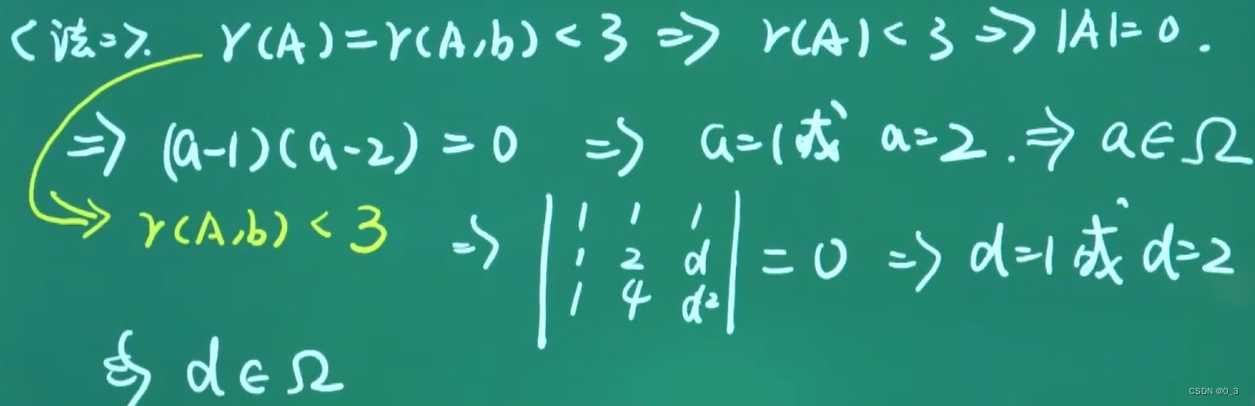 <法二>. r(A)=r(A,b)<3 => r(A)<3 => |A|=0.
=> (a-1)(a-2)=0 => a=1或 a=2. => a∈Ω
=> r(A,b)<3 => | 1 1 1 | = 0 => d=1或 d=2
1 2 d
1 4 d²
=> d∈Ω
CSDN @0_3